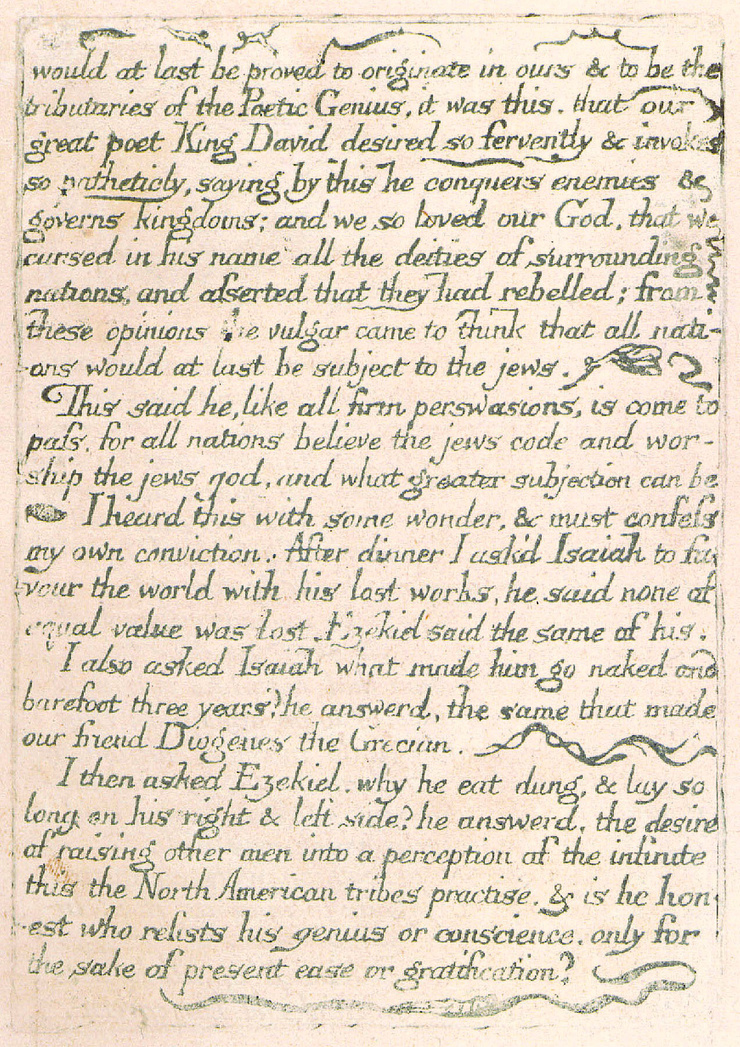 would at last be proved to originate in ours & to be the
tributaries of the Poetic Genius, it was this. that our
great poet King David desired so fervently & invokes
so patheticly, saying by this he conquers enemies &
governs kingdoms; and we so loved our God. that we
cursed in his name all the deities of surrounding
nations, and aſserted that they had rebelled; from
these opinions the vulgar came to think that all nati-
-ons would at last be subject to the jews.
This said he, like all firm perswasions, is come to
paſs. for all nations believe the jews code and wor-
ship the jews god, and what greater subjection can be
I heard this with some wonder, & must confeſs
my own conviction. After dinner I ask'd Isaiah to fa-
vour the world with his lost works, he said none of
equal value was lost. Ezekiel said the same of his.
I also asked Isaiah what made him go naked and
barefoot three years? he answerd, the same that made
our friend Diogenes the Grecian.
I then asked Ezekiel. why he eat dung, & lay so
long on his right & left side? he answerd. the desire
of raising other men into a perception of the infinite
this the North American tribes practise. & is he hon-
-est who resists his genius or conscience. only for
the sake of present ease or gratification?